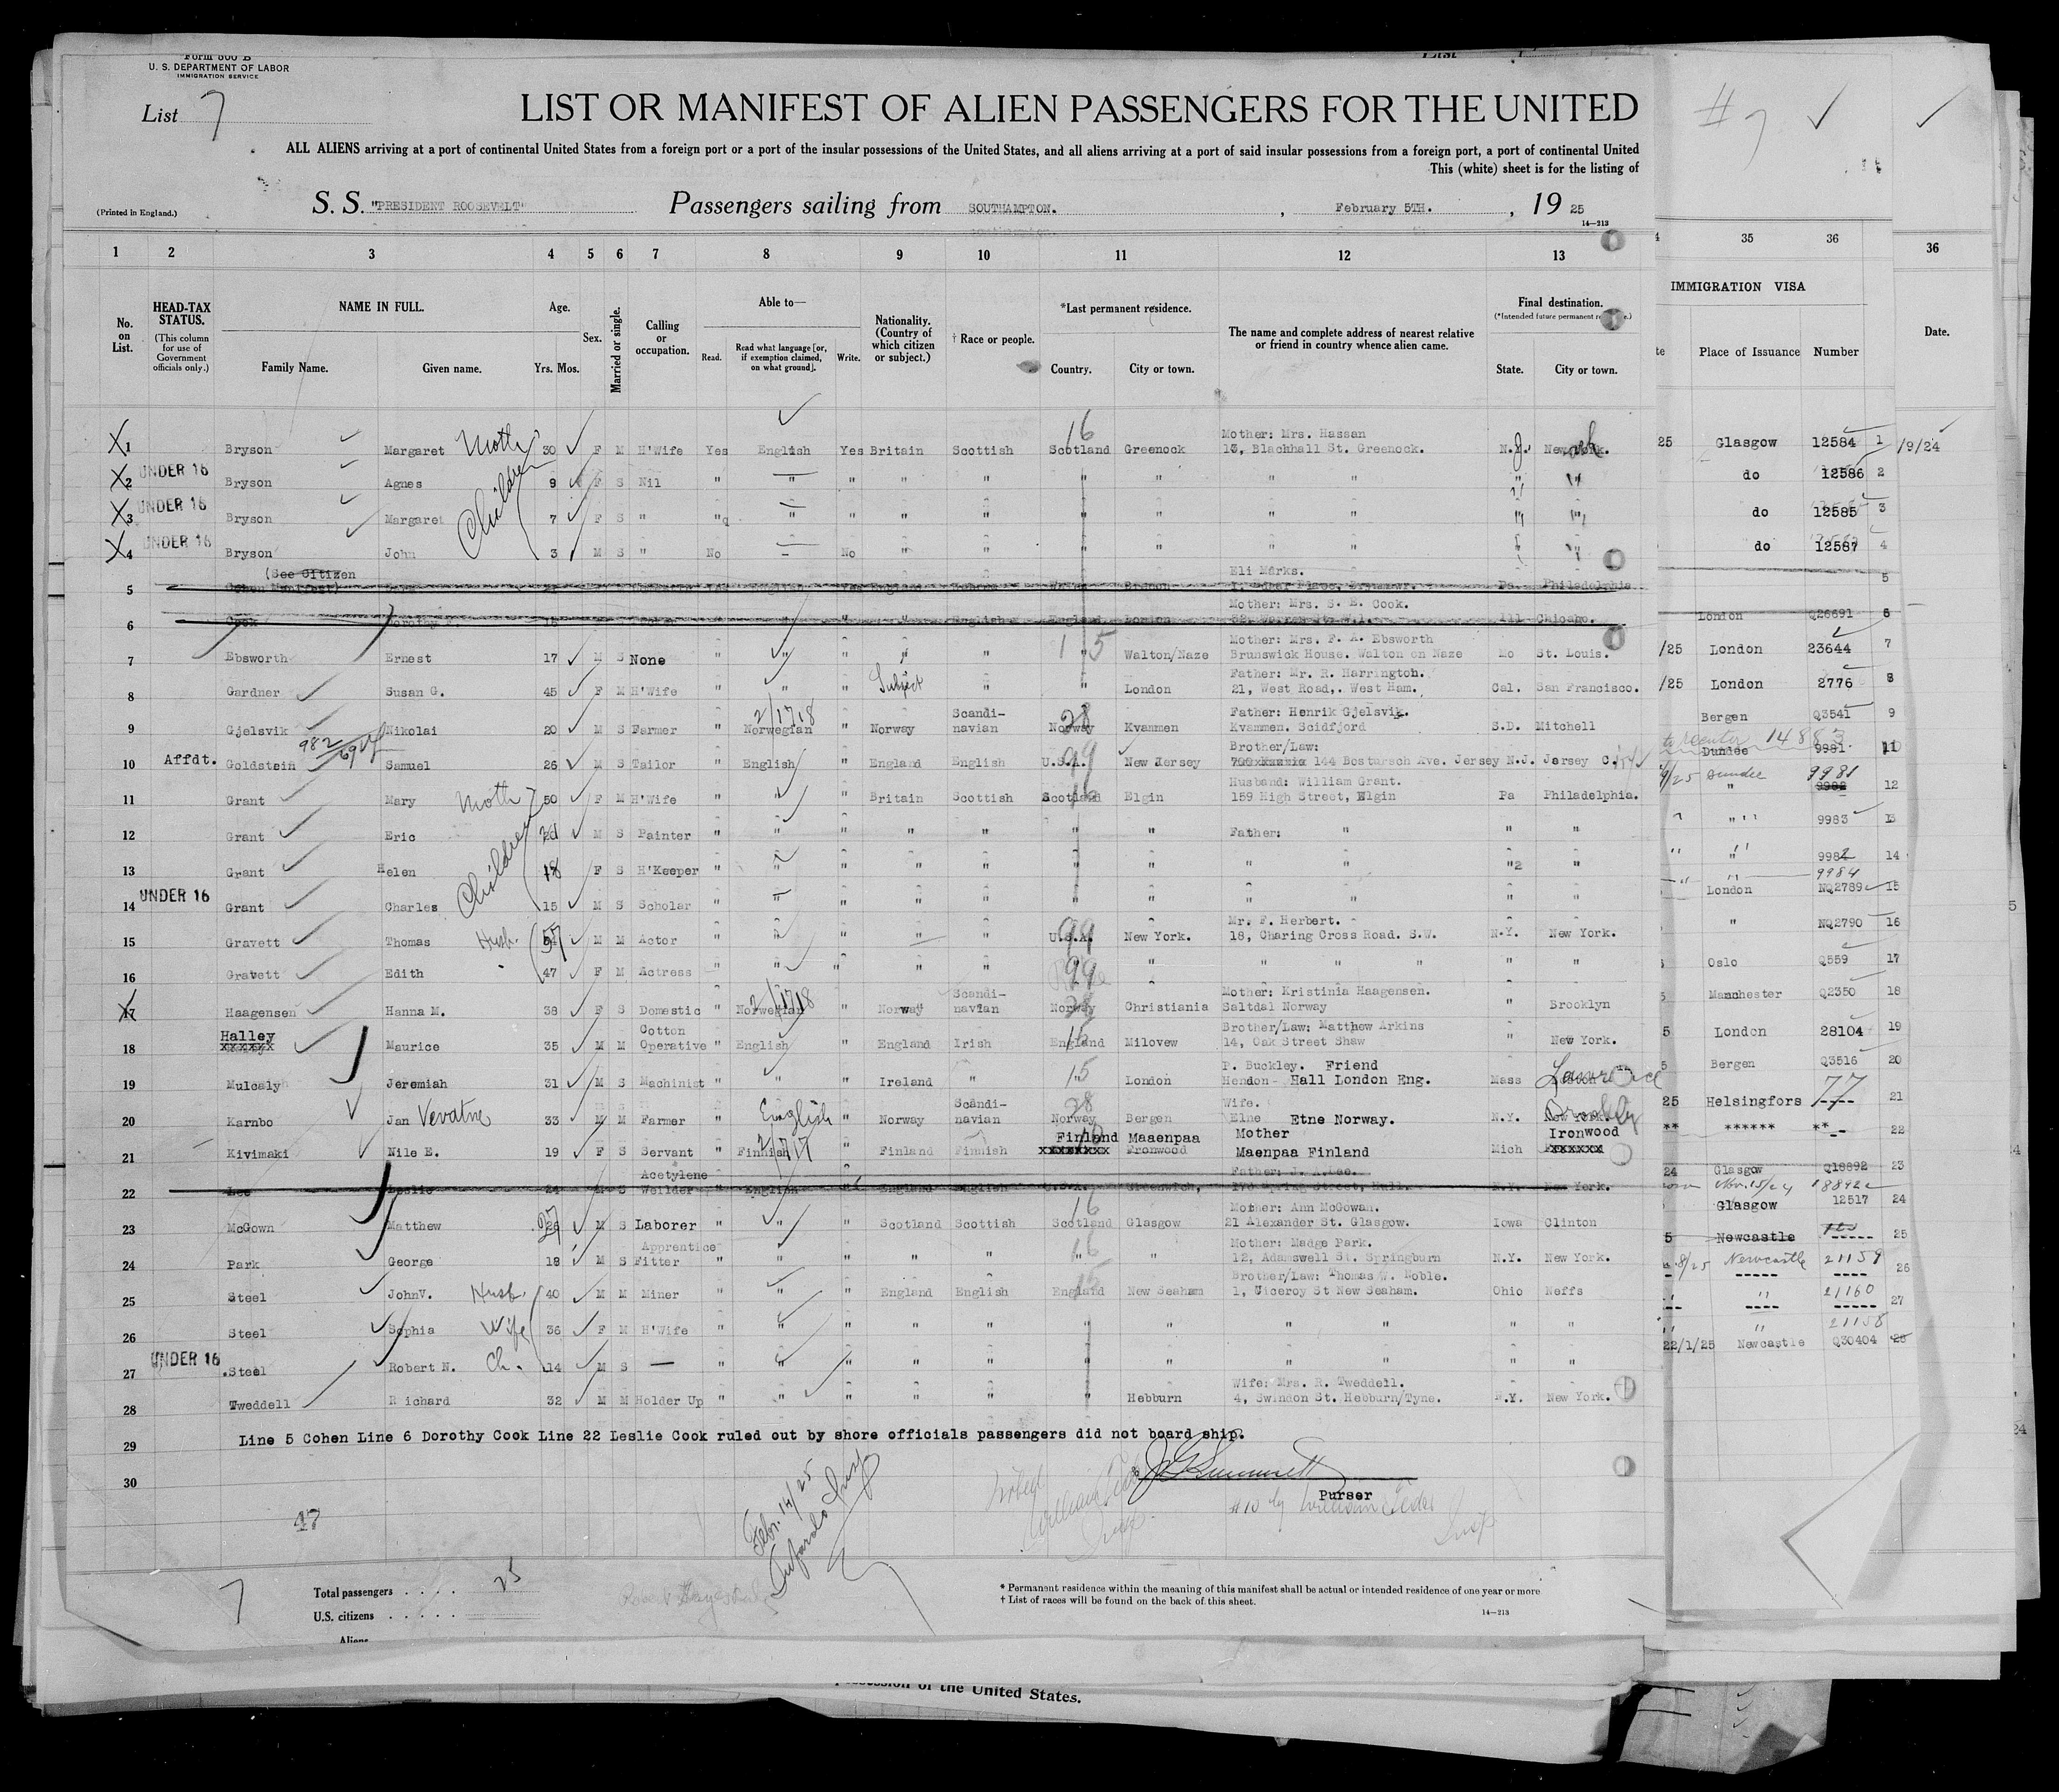 Form 500 B
U. S. DEPARTMENT OF LABOR
IMMIGRATION SERVICE
List 7
LIST OR MANIFEST OF ALIEN PASSENGERS FOR THE UNITED
ALL ALIENS arriving at a port of continental United States from a foreign port or a port of the insular possessions of the United States, and all aliens arriving at a port of said insular possessions from a foreign port, a port of continental United
This (white) sheet is for the listing of
(Printed in England.)
S. S. "PRESIDENT ROOSEVELT" Passengers sailing from SOUTHAMPTON. , February 5TH. , 19 25
14—213
# 7
1 2 3 4 5 6 7 8 9 10 11 12 13 35 36 36
No. on List.
HEAD-TAX STATUS.
(This column for use of Government officials only.)
NAME IN FULL.
Family Name. Given name.
Age.
Yrs. Mos.
Sex.
Married or single.
Calling or occupation.
Able to—
Read. Read what language [or, if exemption claimed, on what ground]. Write.
Nationality. (Country of which citizen or subject.)
† Race or people.
*Last permanent residence.
Country. City or town.
The name and complete address of nearest relative or friend in country whence alien came.
Final destination.
(*Intended future permanent
State. City or town.
IMMIGRATION VISA
Place of Issuance Number
Date.
Mother: Mrs. Hassan
X 1 Bryson Margaret Moth 30 F M H'Wife Yes English Yes Britain Scottish 16 Scotland Greenock 13, Blackhall St. Greenock. N.J. Newark.
X 2 UNDER 16 Bryson Agnes Children 9 F S Nil " " " " " " " " " " "
X 3 UNDER 16 Bryson Margaret 7 F S " " " " " " " " " " " "
X 4 UNDER 16 Bryson John 3 M S " No – No " " " " " " " "
(See Citizen
Eli Marks.
5 Cohen Manifest) Yes English Yes England Pa. Philadelphia
Mother: Mrs. S. E. Cook.
6 Cook Dorothy 18 " " " " English England London Ill Chicago.
Mother: Mrs. F. A. Ebsworth
7 Ebsworth Ernest 17 M S None " " " " " 15 Walton/Naze Brunswick House. Walton on Naze Mo St. Louis.
Father: Mr. R. Harrington.
8 Gardner Susan G. 45 F M H'Wife " " " Subject " " London 21, West Road,. West Ham. Cal. San Francisco.
2/1718 Scandi- 28 Father: Henrik Gjelsvik.
9 Gjelsvik Nikolai 20 M S Farmer " Norwegian " Norway navian Norway Kvammen Kvammen. Scidfjord S.D. Mitchell
982 99 Brother/Law:
10 Affdt. Goldstein Samuel 26 M S Tailor " English " England English U.S.A. New Jersey 144 Bostarsch Ave. Jersey N.J. Jersey C.
Husband: William Grant.
11 Grant Mary Moth 50 F M H'Wife " " " Britain Scottish Scotland 16 Elgin 159 High Street, Elgin Pa Philadelphia.
12 Grant Eric Children 20 M S Painter " " " " " " " Father: " " "
13 Grant Helen 18 F S H'Keeper " " " " " " " " " "2 "
14 UNDER 16 Grant Charles 15 M S Scholar " " " " " " " " " " "
Mr. F. Herbert.
15 Gravett Thomas Husb. 51 M M Actor " " " " " 99 U.S.A. New York. 18, Charing Cross Road. S.W. N.Y. New York.
16 Gravett Edith 47 F M Actress " " " " 99 " " " " " "
2/1718 Scandi- Mother: Kristinia Haagensen.
X 17 Haagensen Hanna M. 38 F S Domestic " Norwegian " Norway navian 28 Norway Christiania Saltdal Norway " Brooklyn
Halley Cotton Brother/Law: Matthew Arkins
18 xxxxxx Maurice 35 M M Operative " English " England Irish 15 England Milovew 14, Oak Street Shaw " New York.
P. Buckley. Friend
19 Mulcaly Jeremiah 31 M S Machinist " " " Ireland " 15 London Hendon- Hall London Eng. Mass Lawrence
Scandi- 28 Wife.
20 Karnbo Jan Vevatne 33 M M Farmer " English " Norway navian Norway Bergen Elne Etne Norway. N.Y. Brooklyn
2/717 Finland Maaenpaa Mother Ironwood
21 Kivimaki Nile E. 19 F S Servant " Finnish " Finland Finnish xxxxxxxx Ironwood Maenpaa Finland Mich xxxxxx
Acetylene Father: J. A. Lee.
22 Lee Leslie 24 M S Weilder " English " England English U.S.A. Greenwich, 170 Spring Street, Hull. N.Y. New York.
16 Mother: Ann McGowan.
23 McGown Matthew 26 M S Laborer " " " Scotland Scottish Scotland Glasgow 21 Alexander St. Glasgow. Iowa Clinton
Apprentice Mother: Madge Park.
24 Park George 18 M S Fitter " " " " " 16 " 12, Adamswell St. Springburn N.Y. New York.
Brother/Law: Thomas W. Noble.
25 Steel JohnV. Husb. 40 M M Miner " " " England English 15 England New Seaham 1, Viceroy St New Seaham. Ohio Neffs
26 Steel Sophia Wife 36 F M H'Wife " " " " " " " " " " "
27 UNDER 16 Steel Robert N. Ch. 14 M S — " " " " " " " " " " "
Wife: Mrs. R. Tweddell.
28 Tweddell Richard 32 M M Holder Up " " " " " " Hebburn 4, Swindon St. Hebburn/Tyne. N.Y. New York.
29 Line 5 Cohen Line 6 Dorothy Cook Line 22 Leslie Cook ruled out by shore officials passengers did not board ship.
30
Purser
47
Febr. 14/25
#10 by William Elder
Insp
7
Total passengers . . . . 25
U.S. citizens . . . . .
Aliens
* Permanent residence within the meaning of this manifest shall be actual or intended residence of one year or more
† List of races will be found on the back of this sheet.
14—213
25 Glasgow 12584 1 /9/24
do 12586 2
do 12585 3
do 12587 4
5
London Q26691 6
/25 London 23644 7
/25 London 2776 8
Bergen Q3541 9
14883
Dundee 9981 11
9/25 Dundee 9981
" 9982 12
" " 9983 13
" " 9982 14
" " 9984
London NQ2789 15
" NQ2790 16
Oslo Q559 17
Manchester Q2350 18
5 London 28104 19
5 Bergen Q3516 20
25 Helsingfors 77 21
** ****** **-- 22
24 Glasgow Q18892 23
Nov. 15/24 18892
Glasgow 12517 24
5 Newcastle ----- 25
8/25 Newcastle 21159
----- ---- 26
" 21160
---- ----- 27
" 21158
22/1/25 Newcastle Q30404 28
possession of the United States.